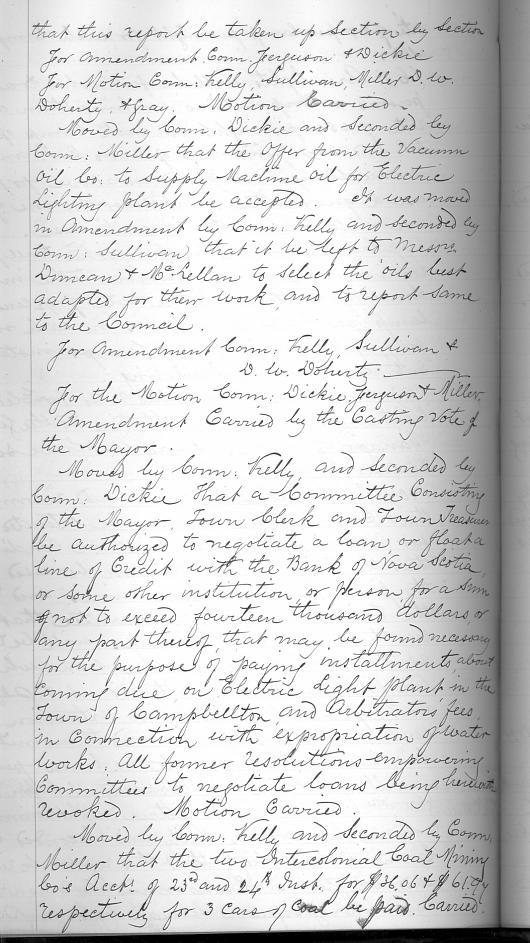 that this report be taken up section by section
For amendment Conn. Ferguson & Dickie
For Motion Conn: Kelly, Sullivan, Miller D. W.
Doherty, & Gray. Motion Carried.
Moved by Conn: Dickie and seconded by
Conn: Miller that the Offer from the Vacuum
Oil Co: to supply Machine Oil for Electric
Lighting plant be accepted. It was moved
in Amendment by Conn: Kelly and seconded by
Conn: Sullivan that it be left to Messrs
Duncan & McLellan to select the oils best
adapted for their work, and to report same
to the Council.
For Amendment Conn: Kelly, Sullivan &
D. W. Doherty
For the Motion Conn: Dickie, Ferguson & Miller.
Amendment Carried by the Casting Vote of
the Mayor.
Moved by Conn: Kelly and seconded by
Conn: Dickie that a Committee Consisting
of the Mayor, Town Clerk and Town Treasurer
be authorized to negotiate a loan, or float a
line of Credit with the Bank of Nova Scotia,
or some other institution, or person, for a sum
of not to exceed fourteen thousand dollars, or
any part thereof, that may be found necessary
for the purpose of paying installments, about
Coming due on Electric Light plant, in the
Town of Campbellton, and Arbitrators fees,
in Connection with expropriation of water
works. All former resolutions empowering
Committees to negotiate loans being herewith
revoked. Motion Carried.
Moved by Conn: Kelly and seconded by Conn:
Miller that the two Intercolonial Coal Mining
Co's Acct. of 23rd and 24th Inst. for $36.06 & $61.
respectively for 3 cars of coal be paid. Carried.